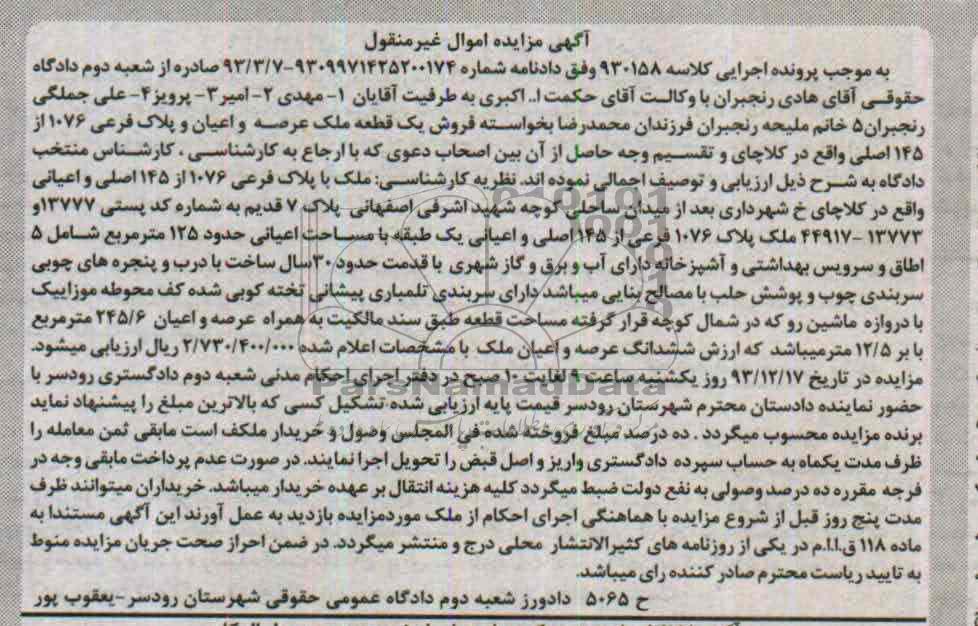 آگهی مزایده اموال غیرمنقول
به موجب پرونده اجرایی کلاسه ۹۳۰۱۵۸ وفق دادنامه شماره ۹۳۰۹۹۷۱۴۲۵۲۰۰۱۷۴-۹۳/۳/۷ صادره از شعبه دوم دادگاه
حقوقی آقای هادی رنجبران با وکالت آقای حکمت ا.. اکبری به طرفیت آقایان ۱- مهدی ۲- امیر ۳- پرویز ۴- علی جملگی
رنجبران۵ خانم ملیحه رنجبران فرزندان محمدرضا بخواسته فروش یک قطعه ملک عرصه و اعیان و پلاک فرعی ۱۰۷۶ از
۱۴۵ اصلی واقع در کلاچای و تقسیم وجه حاصل از آن بین اصحاب دعوی که با ارجاع به کارشناسی . کارشناس منتخب
دادگاه به شرح ذیل ارزیابی و توصیف اجمالی نموده اند. نظریه کارشناسی: ملک با پلاک فرعی ۱۰۷۶ از ۱۴۵ اصلی و اعیانی
واقع در کلاچای خ شهرداری بعد از میدان ساحلی کوچه شهید اشرفی اصفهانی پلاک ۷ قدیم به شماره کد پستی ۱۳۷۷۷و
۱۳۷۷۳ -۴۴۹۱۷ ملک پلاک ۱۰۷۶ فرعی از ۱۴۵ اصلی و اعیانی یک طبقه با مساحت اعیانی حدود ۱۲۵ مترمربع شامل ۵
اطاق و سرویس بهداشتی و آشپزخانه دارای آب و برق و گاز شهری با قدمت حدود ۳۰سال ساخت با درب و پنجره های چوبی
سربندی چوب و پوشش حلب با مصالح بنایی میباشد دارای سربندی تلمباری پیشانی تخته کوبی شده کف محوطه موزاییک
با دروازه ماشین رو که در شمال کوچه قرار گرفته مساحت قطعه طبق سند مالکیت به همراه عرصه و اعیان ۲۴۵/۶ مترمربع
با بر ۱۲/۵ مترمیباشد که ارزش ششدانگ عرصه و اعیان ملک با مشخصات اعلام شده ۲/۷۳۰/۴۰۰/۰۰۰ ریال ارزیابی میشود.
مزایده در تاریخ ۹۳/۱۲/۱۷ روز یکشنبه ساعت ۹ لغایت ۱۰ صبح در دفتر اجرای احکام مدنی شعبه دوم دادگستری رودسر با
حضور نماینده دادستان محترم شهرستان رودسر قیمت پایه ارزیابی شده تشکیل کسی که بالاترین مبلغ را پیشنهاد نماید
برنده مزایده محسوب میگردد . ده درصد مبلغ فروخته شده فی المجلس وصول و خریدار ملکف است مابقی ثمن معامله را
ظرف مدت یکماه به حساب سپرده دادگستری واریز و اصل قبض را تحویل اجرا نمایند. در صورت عدم پرداخت مابقی وجه در
فرجه مقرره ده درصد وصولی به نفع دولت ضبط میگردد کلیه هزینه انتقال بر عهده خریدار میباشد. خریداران میتوانند ظرف
مدت پنج روز قبل از شروع مزایده با هماهنگی اجرای احکام از ملک موردمزایده بازدید به عمل آورند این آگهی مستندا به
ماده ۱۱۸ ق.ا.ا.م در یکی از روزنامه های کثیرالانتشار محلی درج و منتشر میگردد. در ضمن احراز صحت جریان مزایده منوط
به تایید ریاست محترم صادر کننده رای میباشد.
ح ۵۰۶۵ دادورز شعبه دوم دادگاه عمومی حقوقی شهرستان رودسر-یعقوب پور
ParsNamadData